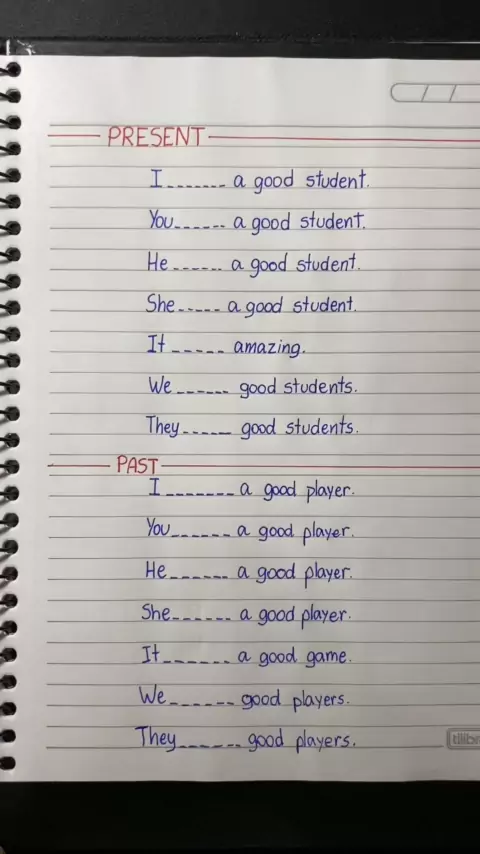 PRESENT
I_______ a good student.
You______ a good student.
He______ a good student.
She_____ a good student.
It_____ amazing.
We______ good students.
They_____ good students.
PAST
I_______ a good player.
You______ a good player.
He______ a good player.
She______ a good player.
It_______ a good game.
We______ good players.
They______ good players.